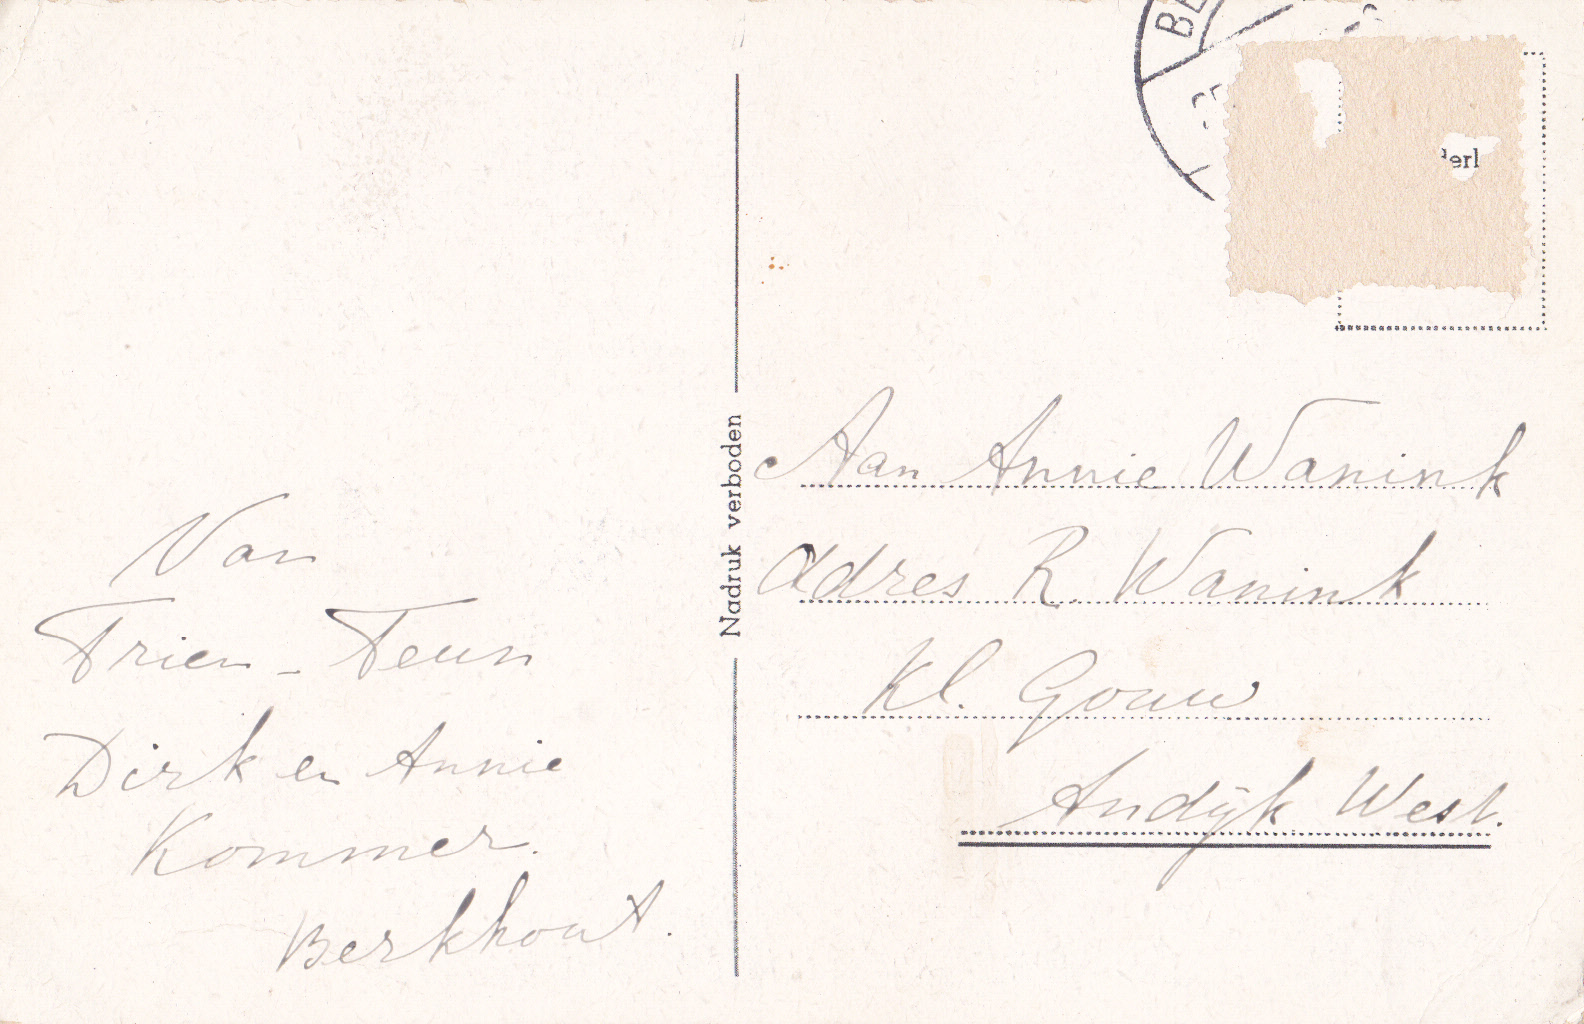 BE
erl
Van
Trien - Teun
Dirk en Annie
Kommer.
Berkhout.
Nadruk verboden
Aan Annie Wanink
Adres R. Wanink
Kl. Gouw
Andÿk West.